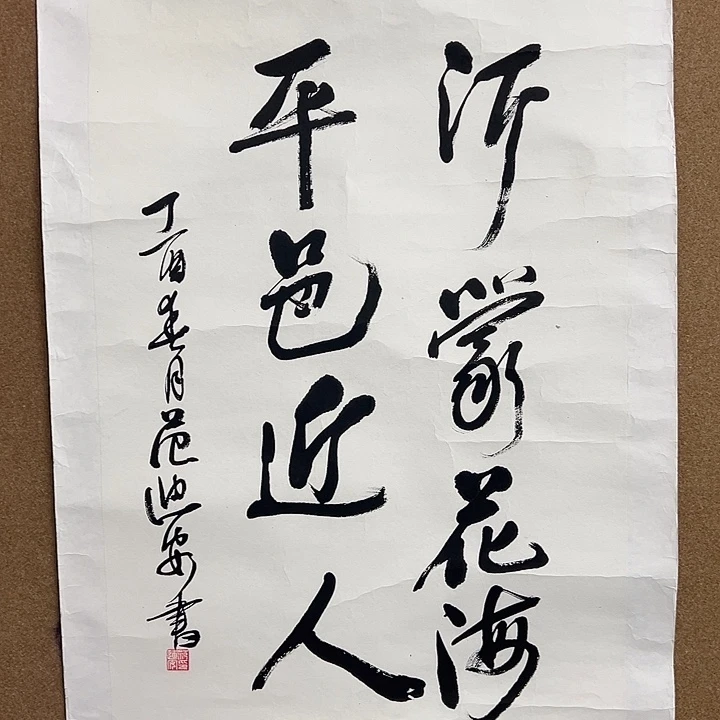 沂蒙花海
平邑近人
丁酉春月范迪安書